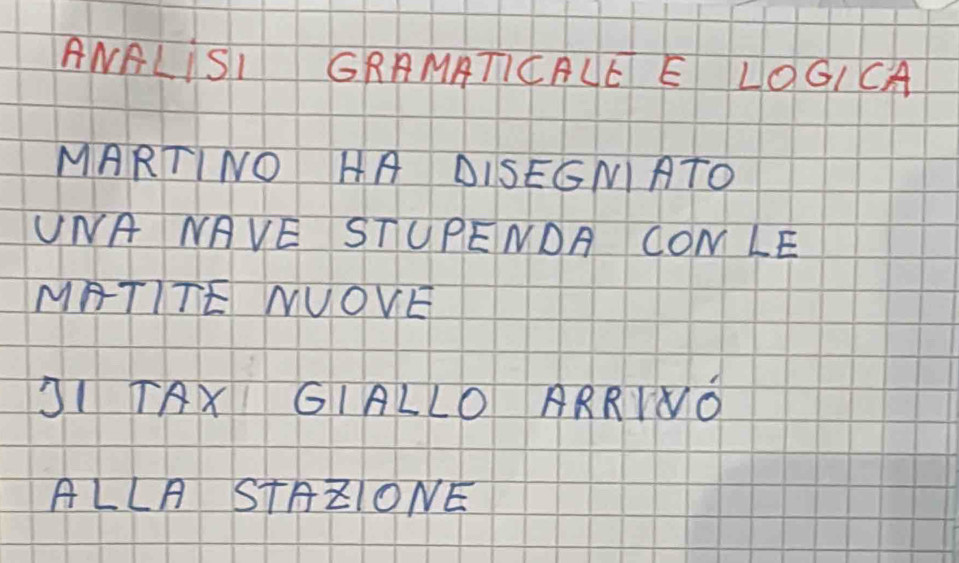 ANALISI GRAMATICALE E LOGICA
MARTINO HA DISEGNIATO
UNA NAVE STUPENDA CON LE
MATITE NUOVE
TAXI GIALLO ARRIVÓ
ALLA STAZIONE